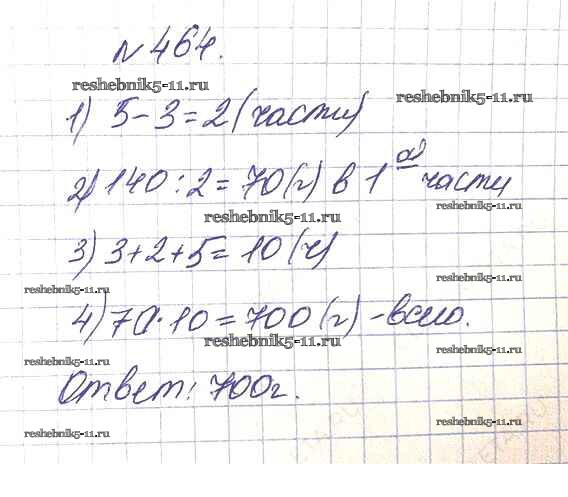 №464.
reshebnik5-11.ru
reshebnik5-11.ru
1) 5-3=2 (части)
2) 140:2=70 (г) в 1ой части
reshebnik5-11.ru
reshebnik5-11.ru
3) 3+2+5=10 (ч)
reshebnik5-11.ru
reshebnik5-11.ru
4) 70·10=700 (г) - всего.
reshebnik5-11.ru
reshebnik5-11.ru
reshebnik5-11.ru
Ответ: 700г.
reshebnik5-11.ru
reshebnik5-11.ru